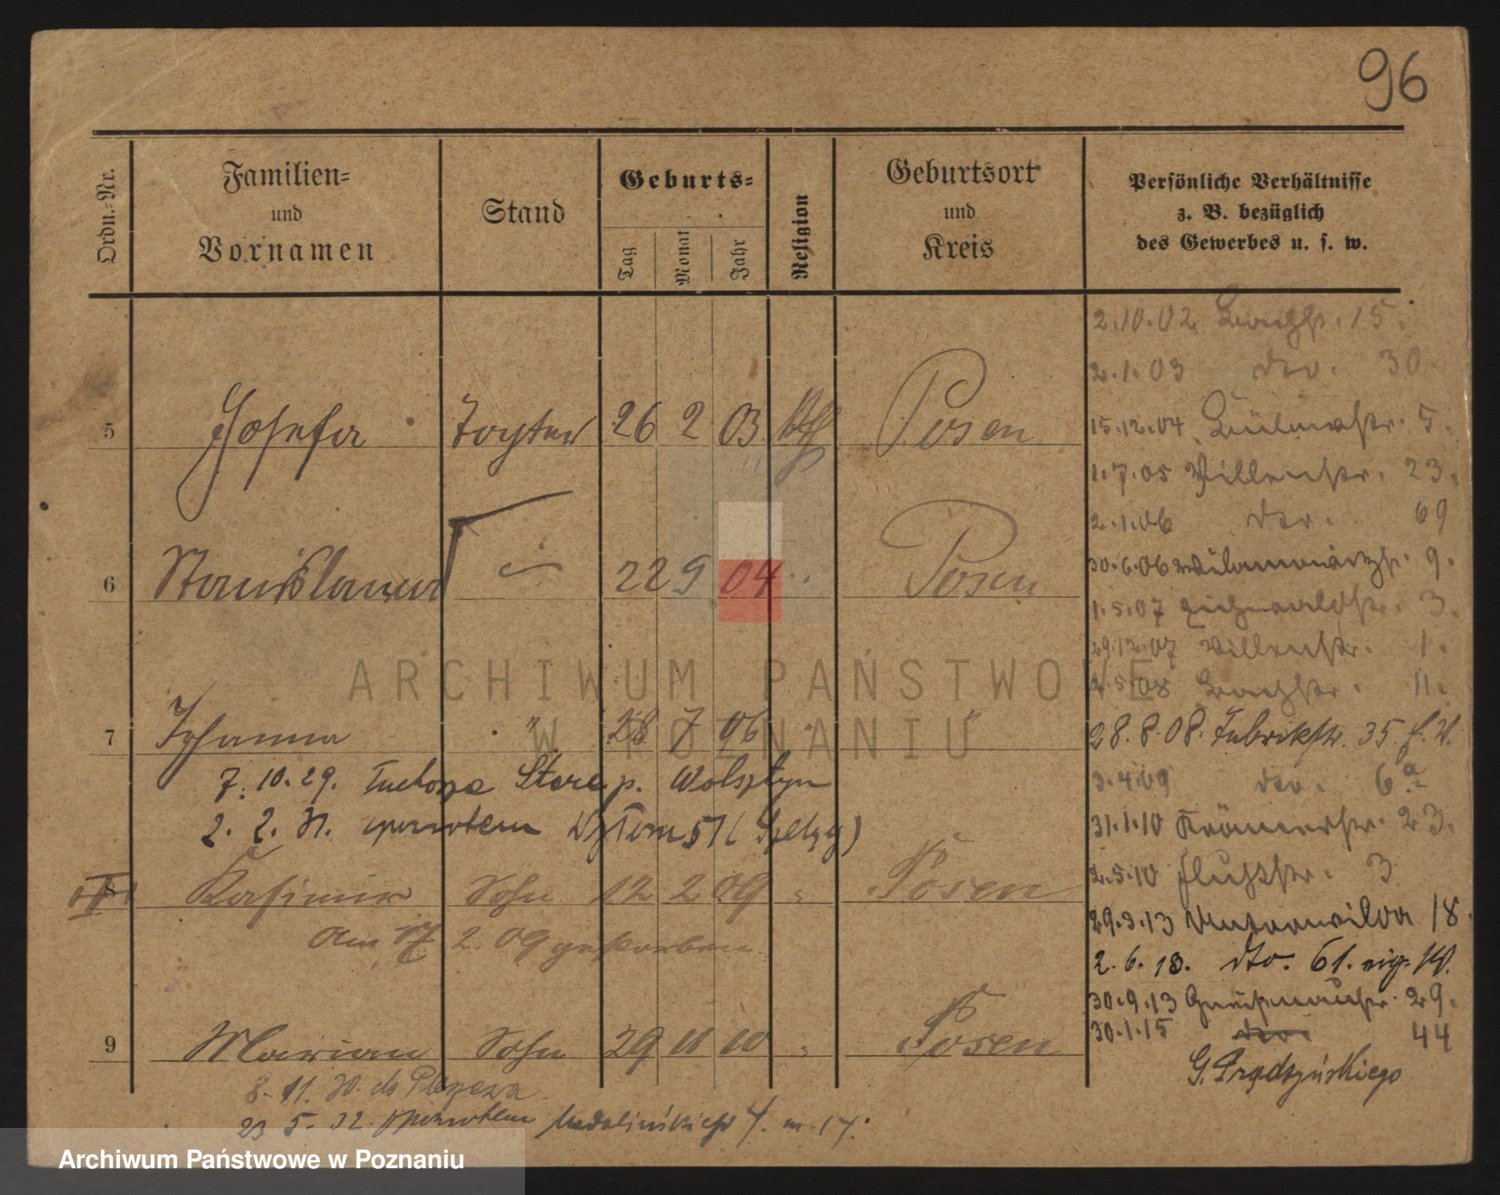 96
Ordn.-Nr.
Familien-
und
Vornamen
Stand
Geburts-
Tag
Monat
Jahr
Religion
Geburtsort
und
Kreis
Persönliche Verhältnisse
z. B. bezüglich
des Gewerbes u. s. w.
5 Josefa Tochter 26 2 03 kth Posen
6 Stanislaus 22 9 04 " Posen
7 Johanna " 28 7 06 " "
7. 10. 29. p. Wolsztyn
2. 2. 31. spowrotem
8 Kasimir Sohn 12 2 09 " Posen
Am 17 2. 09 gestorben
9 Marian Sohn 29 11 10 " Posen
8. 11. 30. do
23 5. 32. spowrotem Madalińskiego 7. m. 17.
2.10.02 Bachstr. 15.
2.1.03 dto. 30.
15.12.04 5.
1.7.05 Villenstr. 23.
2.1.06 dto. 69
30.6.06 9.
1.5.07 Eichwaldstr. 3.
29.12.07 Villenstr. 1.
2.5.08 Bachstr. 11.
28.8.08. Fabrikstr. 35
3.4.09 dto. 6.a
31.1.10 Krämerstr. 23.
2.5.10 Flurstr. 3
29.3.13 Unterwilda 18.
2.6.13. dto. 61.
30.9.13 Gneisenaustr. 29.
30.1.15 dto. 44
G. Prądzyńskiego
ARCHIWUM PAŃSTWOWE
W POZNANIU
Archiwum Państwowe w Poznaniu